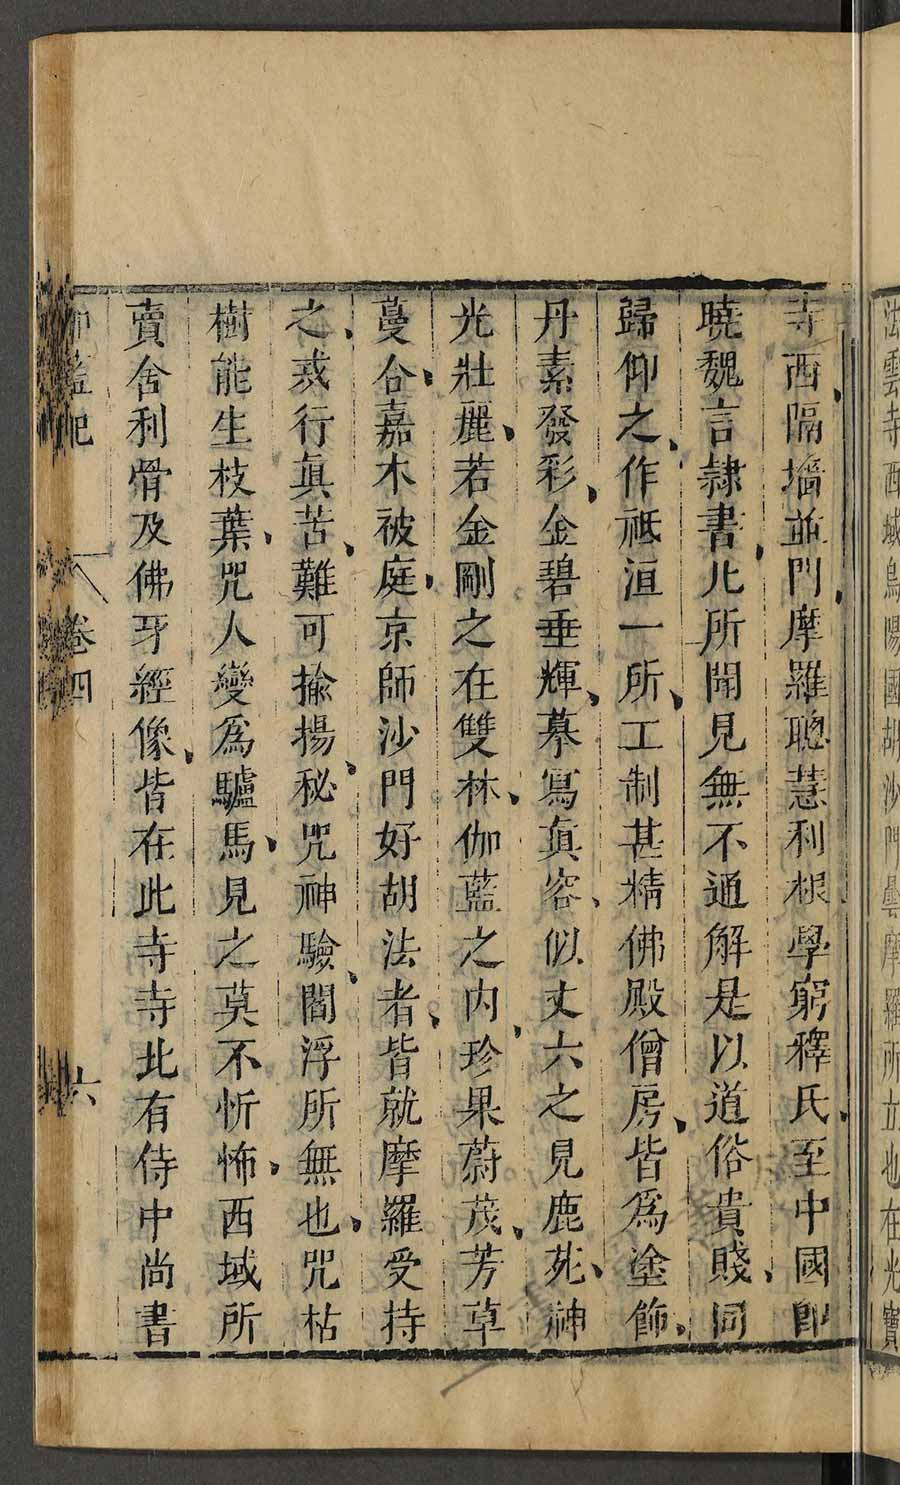 法雲寺西域烏陽國胡沙門曇摩羅所立也在光寶
寺西隔墻並門摩羅聰慧利根學窮釋氏至中國即
曉魏言隸書凡所聞見無不通解是以道俗貴賤同
歸仰之作祗洹一所工制甚精佛殿僧房皆爲塗飾
丹素發彩金碧垂輝摹寫真容似丈六之見鹿苑神
光壯麗若金剛之在雙林伽藍之內珍果蔚茂芳草
蔓合嘉木被庭京師沙門好胡法者皆就摩羅受持
之戒行真苦難可揄揚秘咒神驗閻浮所無也咒枯
樹能生枝葉咒人變爲驢馬見之莫不忻怖西域所
賣舍利骨及佛牙經像皆在此寺寺北有侍中尚書
卷四
六